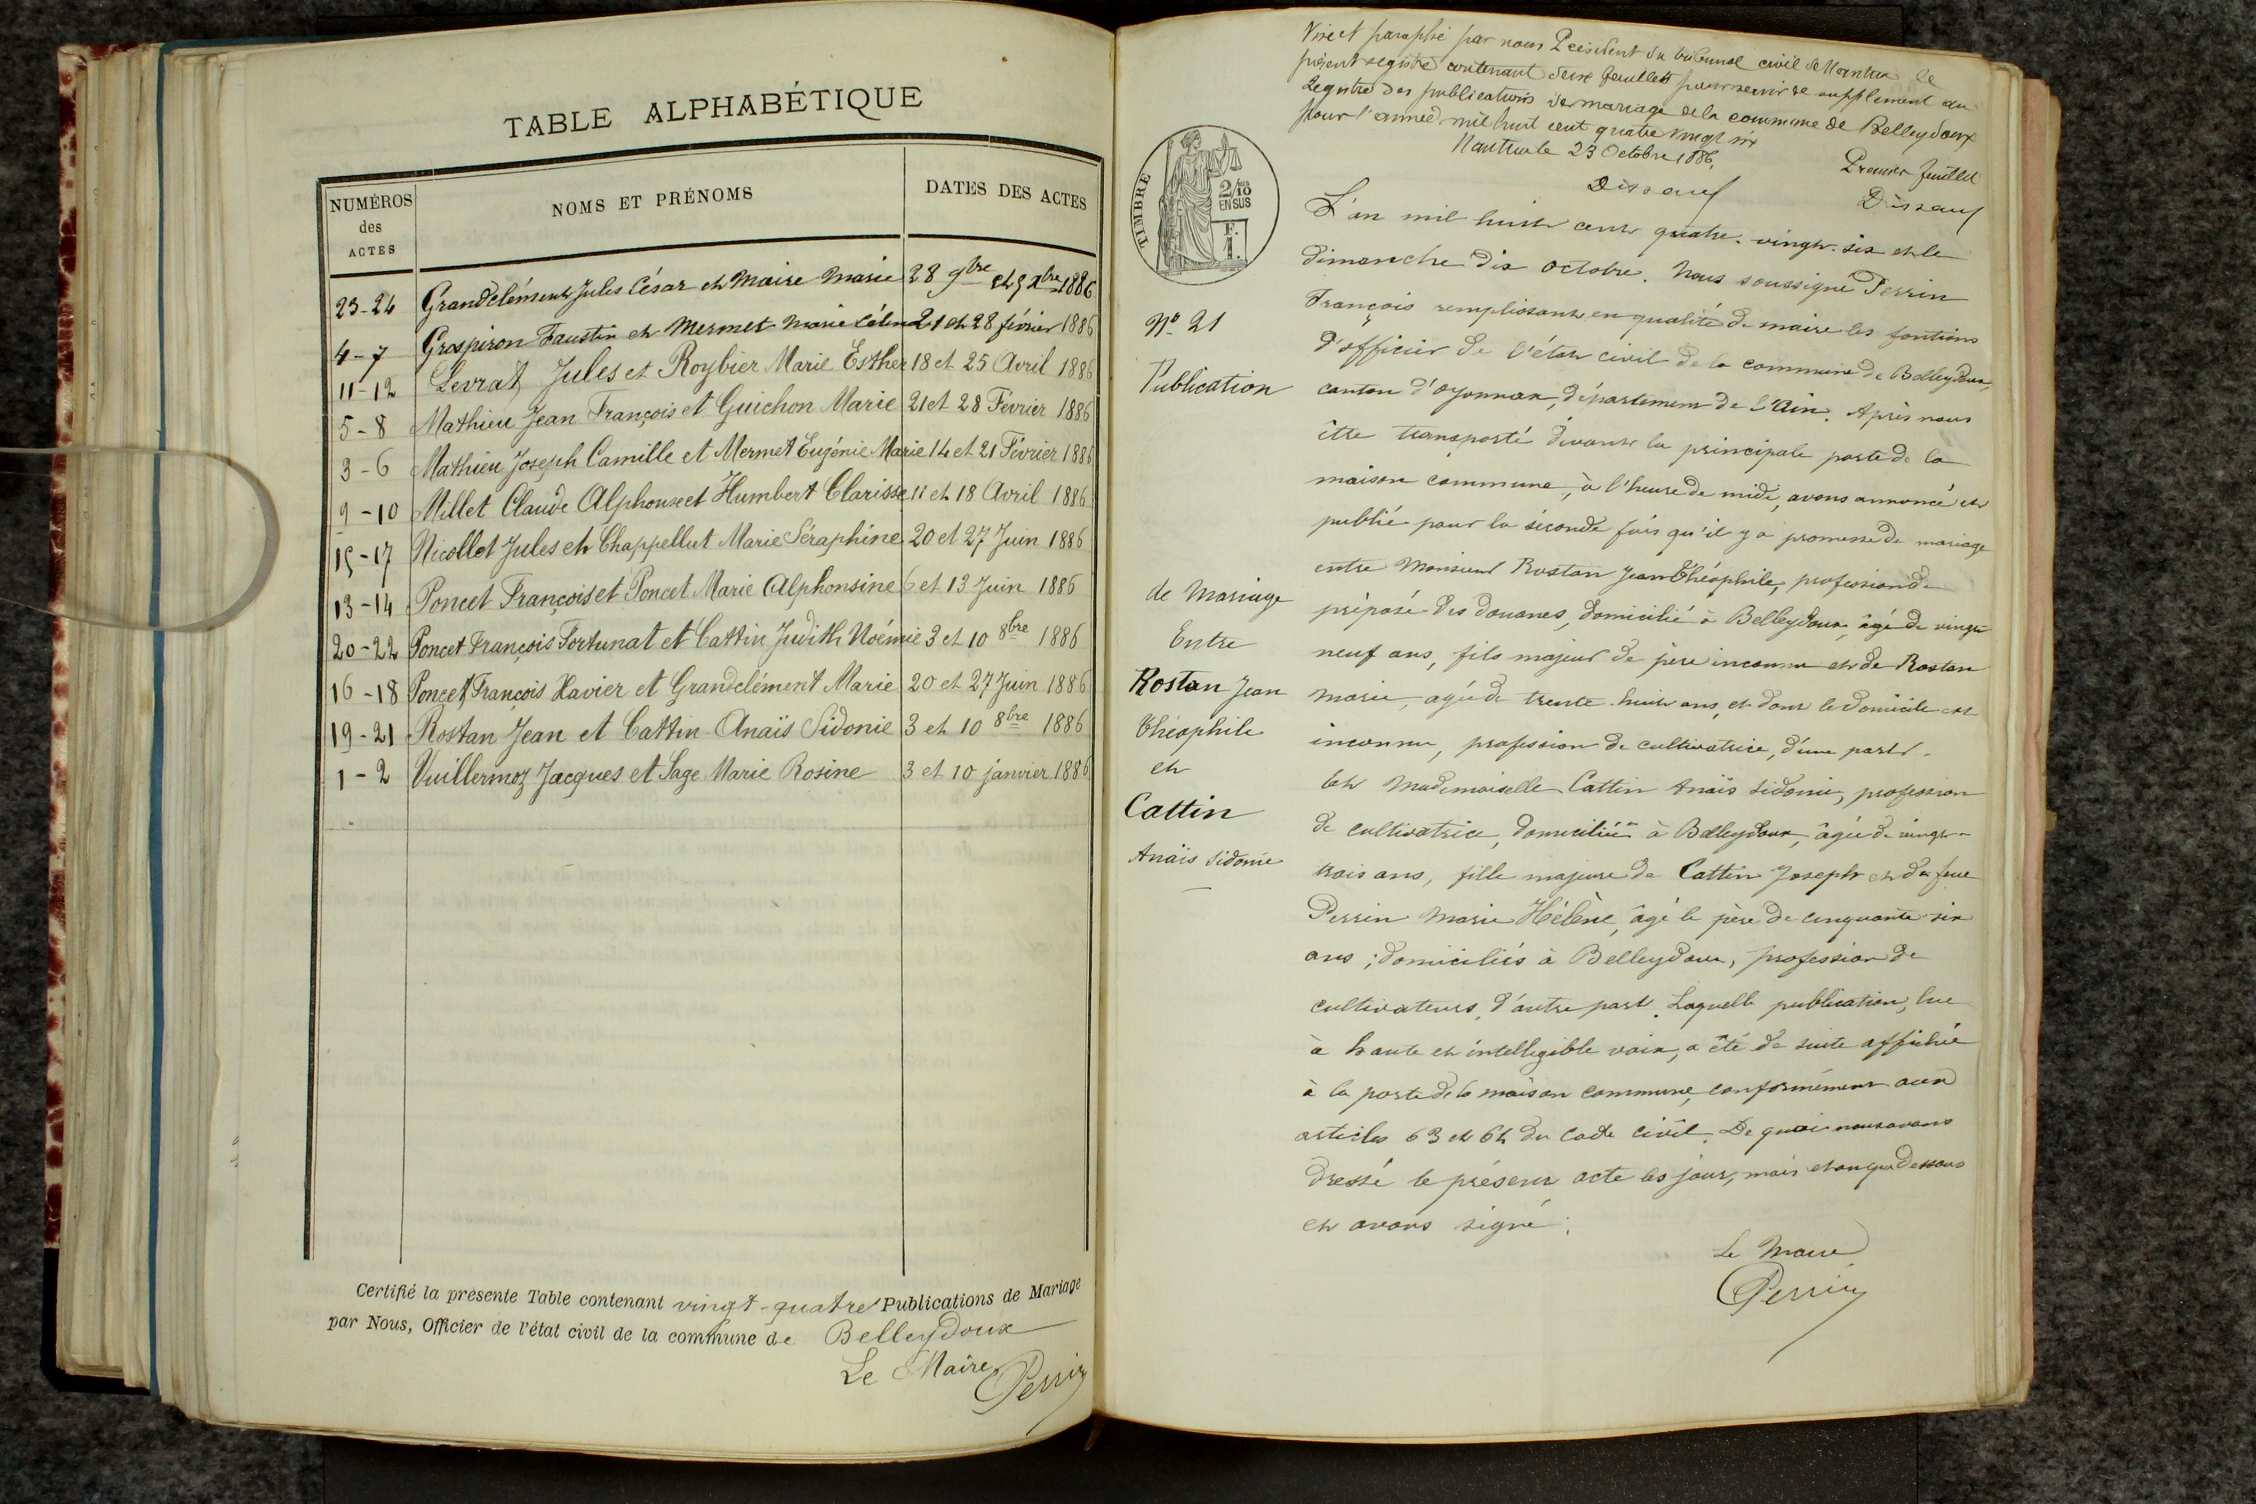 TABLE ALPHABÉTIQUE
NUMÉROS des ACTES
NOMS ET PRÉNOMS
DATES DES ACTES
23-24 Grandclément Jules César et Maire Marie 28 9bre et 5 Xbre 1886
4-7 Grospiron Faustin et Mermet Marie Célina 21 et 28 février 1886
11-12 Levrat Jules et Roybier Marie Esther 18 et 25 Avril 1886
5-8 Mathieu Jean François et Guichon Marie 21 et 28 Février 1886
3-6 Mathieu Joseph Camille et Mermet Eugénie Marie 14 et 21 Février 1886
9-10 Millet Claude Alphonse et Humbert Clarisse 11 et 18 Avril 1886
15-17 Nicollet Jules et Chappellut Marie Séraphine 20 et 27 Juin 1886
13-14 Poncet François et Poncet Marie Alphonsine 6 et 13 Juin 1886
20-22 Poncet François Fortunat et Cattin Judith Noémie 3 et 10 8bre 1886
16-18 Poncet François Xavier et Grandclément Marie 20 et 27 Juin 1886
19-21 Rostan Jean et Cattin Anaïs Sidonie 3 et 10 8bre 1886
1-2 Vuillermoz Jacques et Sage Marie Rosine 3 et 10 janvier 1886
Certifié la présente Table contenant vingt-quatre Publications de Mariage
par Nous, Officier de l'état civil de la commune de Belleydoux
Le Maire
Perrin
Visé et paraphé par nous Président du tribunal civil de Nantua le
présent registre contenant deux feuillets pour servir de supplément au
Registre des publications de mariage de la commune de Belleydoux
pour l'année mil huit cent quatre vingt six
Nantua le 23 Octobre 1886.
Premier feuillet
TIMBRE
2/10 EN SUS
F. 1.
Nº 21
Publication
de Mariage
Entre
Rostan Jean
Théophile
et
Cattin
Anaïs Sidonie
L'an mil huit cent quatre-vingt-six et le
dimanche dix octobre. Nous soussigné Perrin
François remplissant en qualité de maire les fontions
d'officier de l'état civil de la commune de Belleydoux,
canton d'Oyonnax, département de l'Ain. Après nous
être transporté dévant la principale porte de la
maison commune, à l'heure de midi, avons annoncé et
publié pour la séconde fois qu'il y a promesse de mariage
entre Monsieur Rostan Jean Théophile, profession de
préposé des douanes, domicilié à Belleydoux, âgé de vingt
neuf ans, fils majeur de père inconnu et de Rostan
Marie, agée de trente-huit ans, et dont le domicile est
inconnu, profession de cultivatrice, d'une part.
Et Mademoiselle Cattin Anaïs Sidonie, profession
de cultivatrice, domiciliée à Belleydoux, âgée de vingt-
trois ans, fille majeure de Cattin Joseph et de feue
Perrin Marie Hélène, âgé le père de cinquante-six
ans ; domiciliés à Belleydoux, profession de
cultivateurs, d'autre part. Laquelle publication, lue
à haute et intelligible voix, a été de suite affichée
à la porte de la maison commune, conformément aux
articles 63 et 64 du Code civil. De quoi nous avons
dressé le présent acte les jour, mois et an que dessous
et avons signé.
Le Maire
Perrin